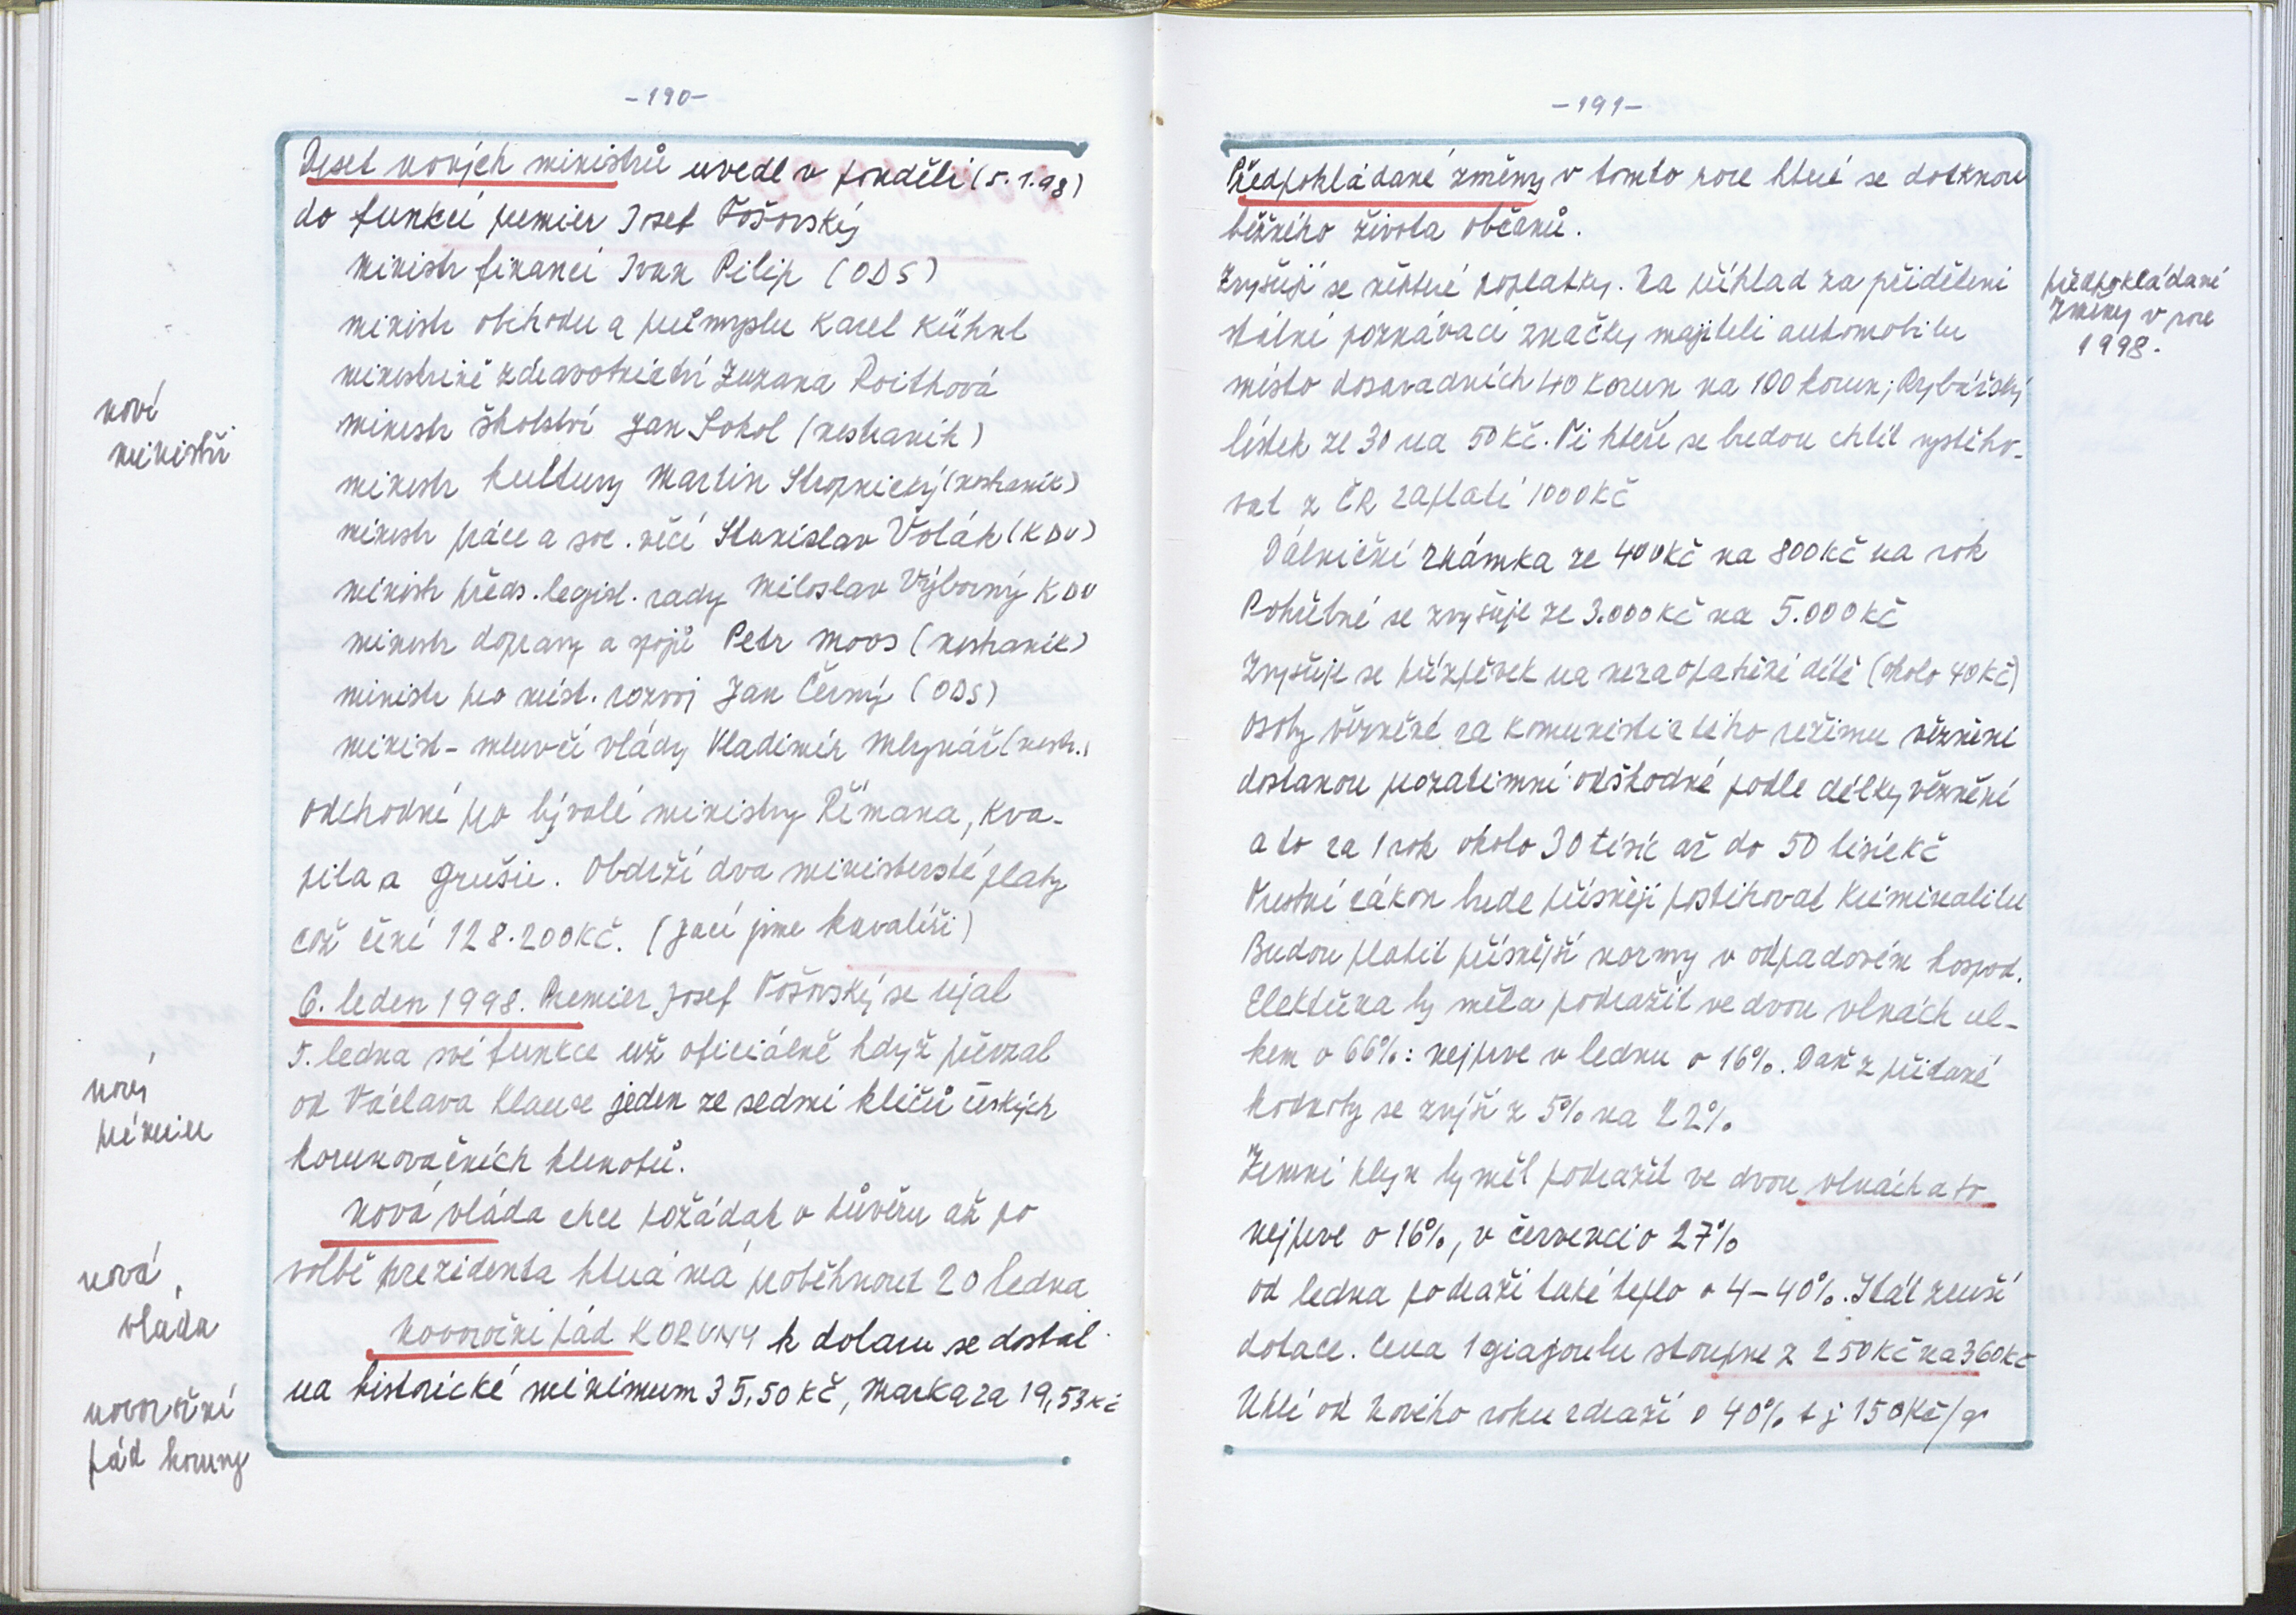 -190-
Deset nových ministrů uvedl v pondělí (5.1.98)
do funkcí premier Josef Tošovský
ministr financí Ivan Pilip (ODS)
ministr obchodu a průmyslu Karel Kühnl
ministrině zdravotnictví Zuzana Roithová
ministr školství Jan Sokol (nestraník)
ministr kultury Martin Stropnický (nestraník)
ministr práce a soc. věcí Stanislav Volák (KDU)
ministr předs. legisl. rady Miloslav Výborný KDU
ministr dopravy a spojů Petr Moos (nestraník)
ministr pro míst. rozvoj Jan Černý (ODS)
minist - mluvčí vlády Vladimír Mlynář (nestr.)
odchodné pro bývalé ministry Římana, Kva-
pila a Grušu. Obdrží dva ministerské platy
což činí 128.200Kč. (Jací jsme kavalíři)
6. leden 1998. Premier Josef Tošovský se ujal
5. ledna své funkce už oficiálně když převzal
od Václava Klause jeden ze sedmi klíčů českých
korunovačních klenotů.
Nová vláda chce požádat o důvěru až po
volbě prezidenta která má proběhnout 20 ledna
Novoroční pád KORUNY k dolaru se dostal
na historické minimum 35,50 Kč, Marka za 19,53 Kč
noví
ministři
nový
prémier
nová
vláda
novoroční
pád koruny
-191-
Předpokládané změny v tomto roce které se dotknou
běžného života občanů.
Zvyšují se některé poplatky. Na příklad za přidělení
státní poznávací značky majiteli automobilu
místo dosavadních 40 korun na 100 korun; Rybářský
lístek ze 30 na 50 Kč. Ti kteří se budou chtít vystěho-
vat z ČR zaplatí 1000 Kč
Dálniční známka ze 400 Kč na 800 Kč na rok
Pohřebné se zvyšuje ze 3.000 Kč na 5.000 Kč
Zvyšuje se příspěvek na nezaopatřené dítě (okolo 40 Kč)
Osoby vězněné za komunistického režimu věznění
dostanou prozatimní odškodné podle délky věznění
a to za 1 rok okolo 30 tisíc až do 50 tisíc Kč
Trestní zákon bude přísněji postihovat kriminalitu
Budou platit přísnější normy v odpadovém hospod.
Elektřina by měla podražit ve dvou vlnách cel-
kem o 66%: nejprve v lednu o 16%. Daň z přidané
hodnoty se zvýší z 5% na 22%
Zemní plyn by měl podražit ve dvou vlnách a to
nejprve o 16%, v červenci o 27%
od ledna podraží také teplo o 4-40%. Stát zruší
dotace. Cena 1 giajoulu stoupne z 250 Kč na 360 Kč
Uhlí od Nového roku zdraží o 40% t j 150 Kč/q
předpokládané
změny v roce
1998.